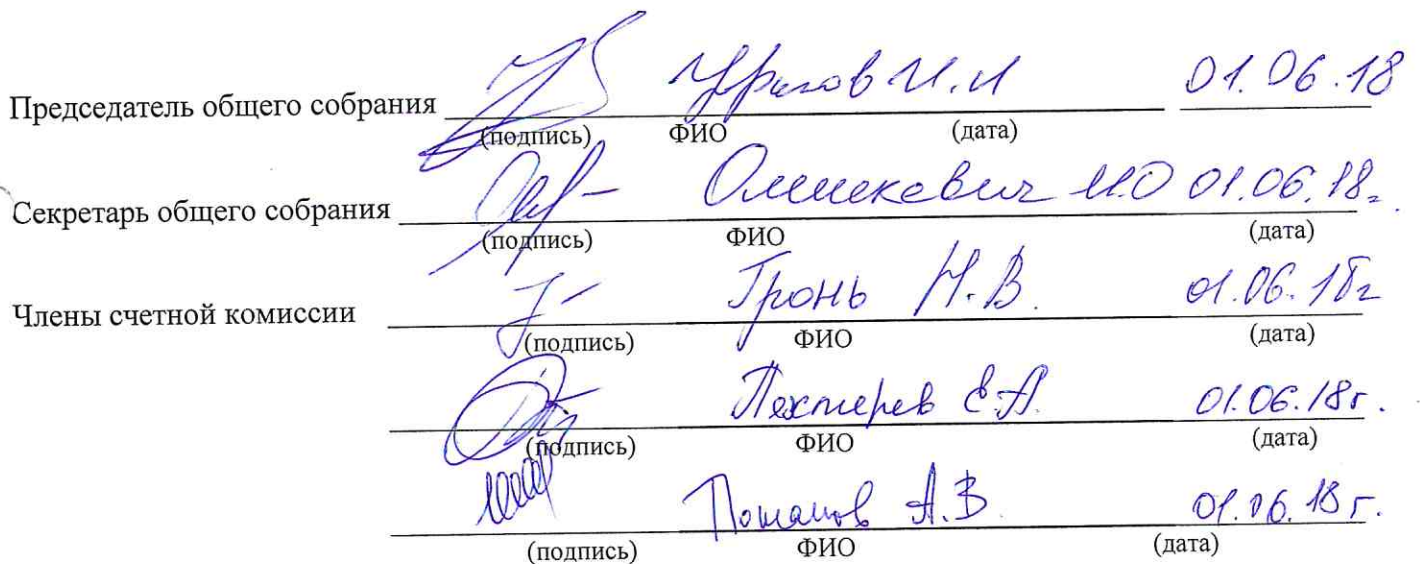 Председатель общего собрания И.И 01.06.18
(подпись) ФИО (дата)
Секретарь общего собрания И.О 01.06.18г.
(подпись) ФИО (дата)
Члены счетной комиссии Гронь Н.В. 01.06.18г
(подпись) ФИО (дата)
Пехтерев Е.А. 01.06.18г.
(подпись) ФИО (дата)
Потапов А.В. 01.06.18г.
(подпись) ФИО (дата)